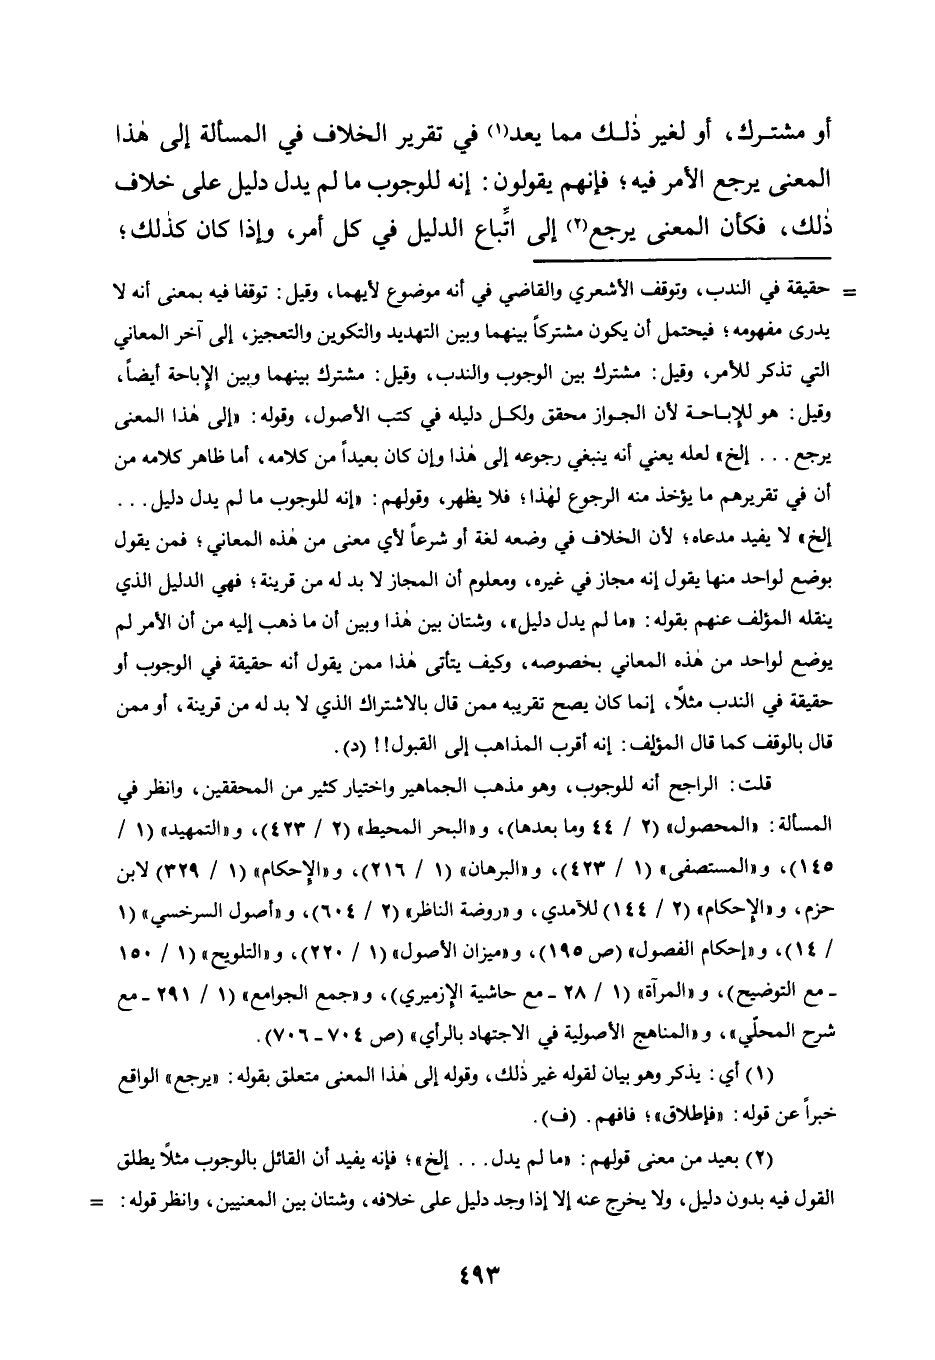 أو مشتـرك، أو لغير ذٰلـك مما يعد(١) في تقرير الخلاف في المسألة إلى هٰذا
المعنى يرجع الأمر فيه؛ فإنهم يقولون: إنه للوجوب ما لم يدل دليل على خلاف
ذٰلك، فكأن المعنى يرجع(٢) إلى اتِّباع الدليل في كل أمر، وإذا كان كذٰلك؛
= حقيقة في الندب، وتوقف الأشعري والقاضي في أنه موضوع لأيهما، وقيل: توقفا فيه بمعنى أنه لا
يدرى مفهومه؛ فيحتمل أن يكون مشتركاً بينهما وبين التهديد والتكوين والتعجيز، إلى آخر المعاني
التي تذكر للأمر، وقيل: مشترك بين الوجوب والندب، وقيل: مشترك بينهما وبين الإباحة أيضاً،
وقيل: هو للإبـاحـة لأن الجـواز محقق ولكـل دليله في كتب الأصول، وقوله: «إلى هٰذا المعنى
يرجع... إلخ» لعله يعني أنه ينبغي رجوعه إلى هٰذا وإن كان بعيداً من كلامه، أما ظاهر كلامه من
أن في تقريرهم ما يؤخذ منه الرجوع لهٰذا؛ فلا يظهر، وقولهم: «إنه للوجوب ما لم يدل دليل...
إلخ» لا يفيد مدعاه؛ لأن الخلاف في وضعه لغة أو شرعاً لأي معنى من هٰذه المعاني؛ فمن يقول
بوضع لواحد منها يقول إنه مجاز في غيره، ومعلوم أن المجاز لا بد له من قرينة؛ فهي الدليل الذي
ينقله المؤلف عنهم بقوله: «ما لم يدل دليل»، وشتان بين هٰذا وبين أن ما ذهب إليه من أن الأمر لم
يوضع لواحد من هٰذه المعاني بخصوصه، وكيف يتأتى هٰذا ممن يقول أنه حقيقة في الوجوب أو
حقيقة في الندب مثلًا، إنما كان يصح تقريبه ممن قال بالاشتراك الذي لا بد له من قرينة، أو ممن
قال بالوقف كما قال المؤلف: إنه أقرب المذاهب إلى القبول!! (د).
قلت: الراجح أنه للوجوب، وهو مذهب الجماهير واختيار كثير من المحققين، وانظر في
المسألة: «المحصول» (٢ / ٤٤ وما بعدها)، و«البحر المحيط» (٢ / ٤٢٣)، و«التمهيد» (١ /
١٤٥)، و«المستصفى» (١ / ٤٢٣)، و«البرهان» (١ / ٢١٦)، و«الإحكام» (١ / ٣٢٩) لابن
حزم، و«الإحكام» (٢ / ١٤٤) للآمدي، و«روضة الناظر» (٢ / ٦٠٤)، و«أصول السرخسي» (١
/ ١٤)، و«إحكام الفصول» (ص ١٩٥)، و«ميزان الأصول» (١ / ٢٢٠)، و«التلويح» (١ / ١٥٠
ـ مع التوضيح)، و«المرآة» (١ / ٢٨ ـ مع حاشية الإزميري)، و«جمع الجوامع» (١ / ٢٩١ ـ مع
شرح المحلّي»، و«المناهج الأصولية في الاجتهاد بالرأي» (ص ٧٠٤ ـ ٧٠٦).
(١) أي: يذكر وهو بيان لقوله غير ذٰلك، وقوله إلى هٰذا المعنى متعلق بقوله: «يرجع» الواقع
خبراً عن قوله: «فإطلاق»؛ فافهم. (ف).
(٢) بعيد من معنى قولهم: «ما لم يدل... إلخ»؛ فإنه يفيد أن القائل بالوجوب مثلًا يطلق
القول فيه بدون دليل، ولا يخرج عنه إلا إذا وجد دليل على خلافه، وشتان بين المعنيين، وانظر قوله: =
٤٩٣